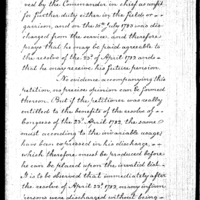 ved by the Commander in chief as unfit
for further duty either in the field or
garrison, and on the 10th July 1783 was dis-
charged from the service and therefore
prays that he may be paid agreeable to
the resolve of the 23d of April 1782 and
that he may receive his future pension.
No evidence accompanying this
petition, no precise opinion can be formed
thereon. But if the petitioner was really
entitled to the benefits of the resolve of
Congress of the 23d April 1782, the same
must according to the invariable usage
have been expressed in his discharge,
which therefore must be produced before
he can be placed upon the invalid list.
It is to be observed that immediately after
the resolve of April 23d 1782, many infirm
persons were discharged without being